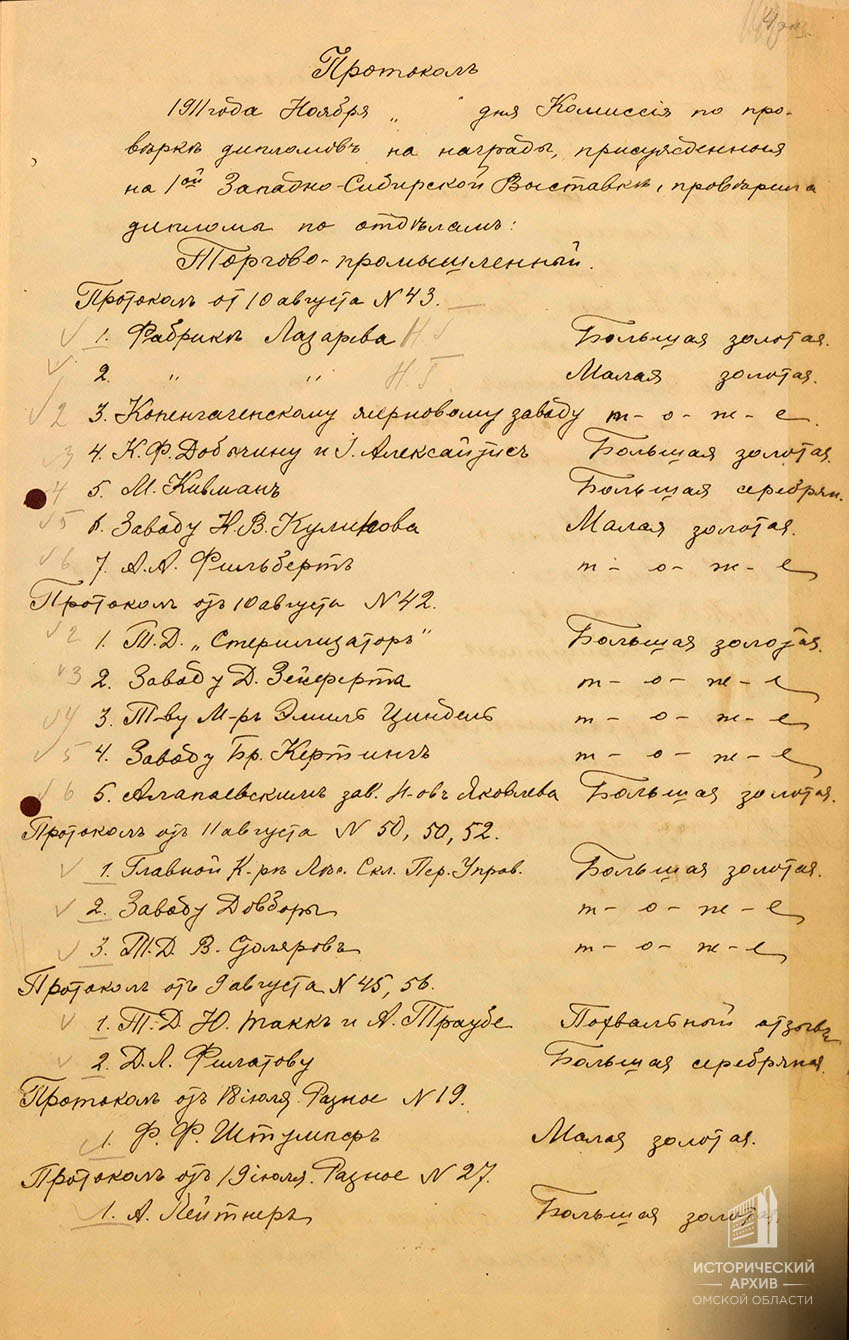 Протоколъ
1911 года Ноября „ " дня Комиссія по про-
вѣркѣ дипломовъ на награды, присужденныя
на 1ой Западно-Сибирской Выставкѣ, провѣрила
дипломы по отдѣламъ:
Торгово-промышленный.
Протоколъ от 10 августа N 43.
1. Фабрикѣ Лазарева Н.Г Большая золотая.
2. " " Н.Г. Малая золотая.
2 3. Копенгагенскому жерновому заводу т-о-ж-е.
3 4. К.Ф. Добычину и І. Большая золотая.
4 5. М. Кивманъ Большая серебрян.
5 6. Заводу Н.В. Куликова Малая золотая.
6 7. А.А. Фильбертъ т-о-ж-е
Протоколъ отъ 10 августа N 42.
2 1. Т.Д. „Стерилизаторъ" Большая золотая.
3 2. Заводу Д. Зейферта т-о-ж-е
4 3. Т-ву М-ръ Эмиль Циндель т-о-ж-е
5 4. Заводу Бр. Кертингъ т-о-ж-е
6 5. Алапаевскимъ зав. Н-овъ Яковлева Большая золотая.
Протоколъ отъ 11 августа N 50, 50, 52.
1. Главной К-рѣ Лѣс. Скл. Пер. Упров. Большая золотая.
2. Заводу Довборы т-о-ж-е
3. Т.Д. В. Столяровъ т-о-ж-е
Протоколъ отъ 9 августа N 45, 56.
1. Т.Д. Ю. Таккъ и А. Траубе Похвальный отзывъ
2. Д.Л. Филатову Большая серебряная.
Протоколъ отъ 18 іюля. Разное N 19.
1. Ф.Ф. Штумпфъ Малая золотая.
Протоколъ отъ 19 іюля. Разное N 27.
1. А. Лейтнеръ Большая золотая.
ИСТОРИЧЕСКИЙ
АРХИВ
ОМСКОЙ ОБЛАСТИ